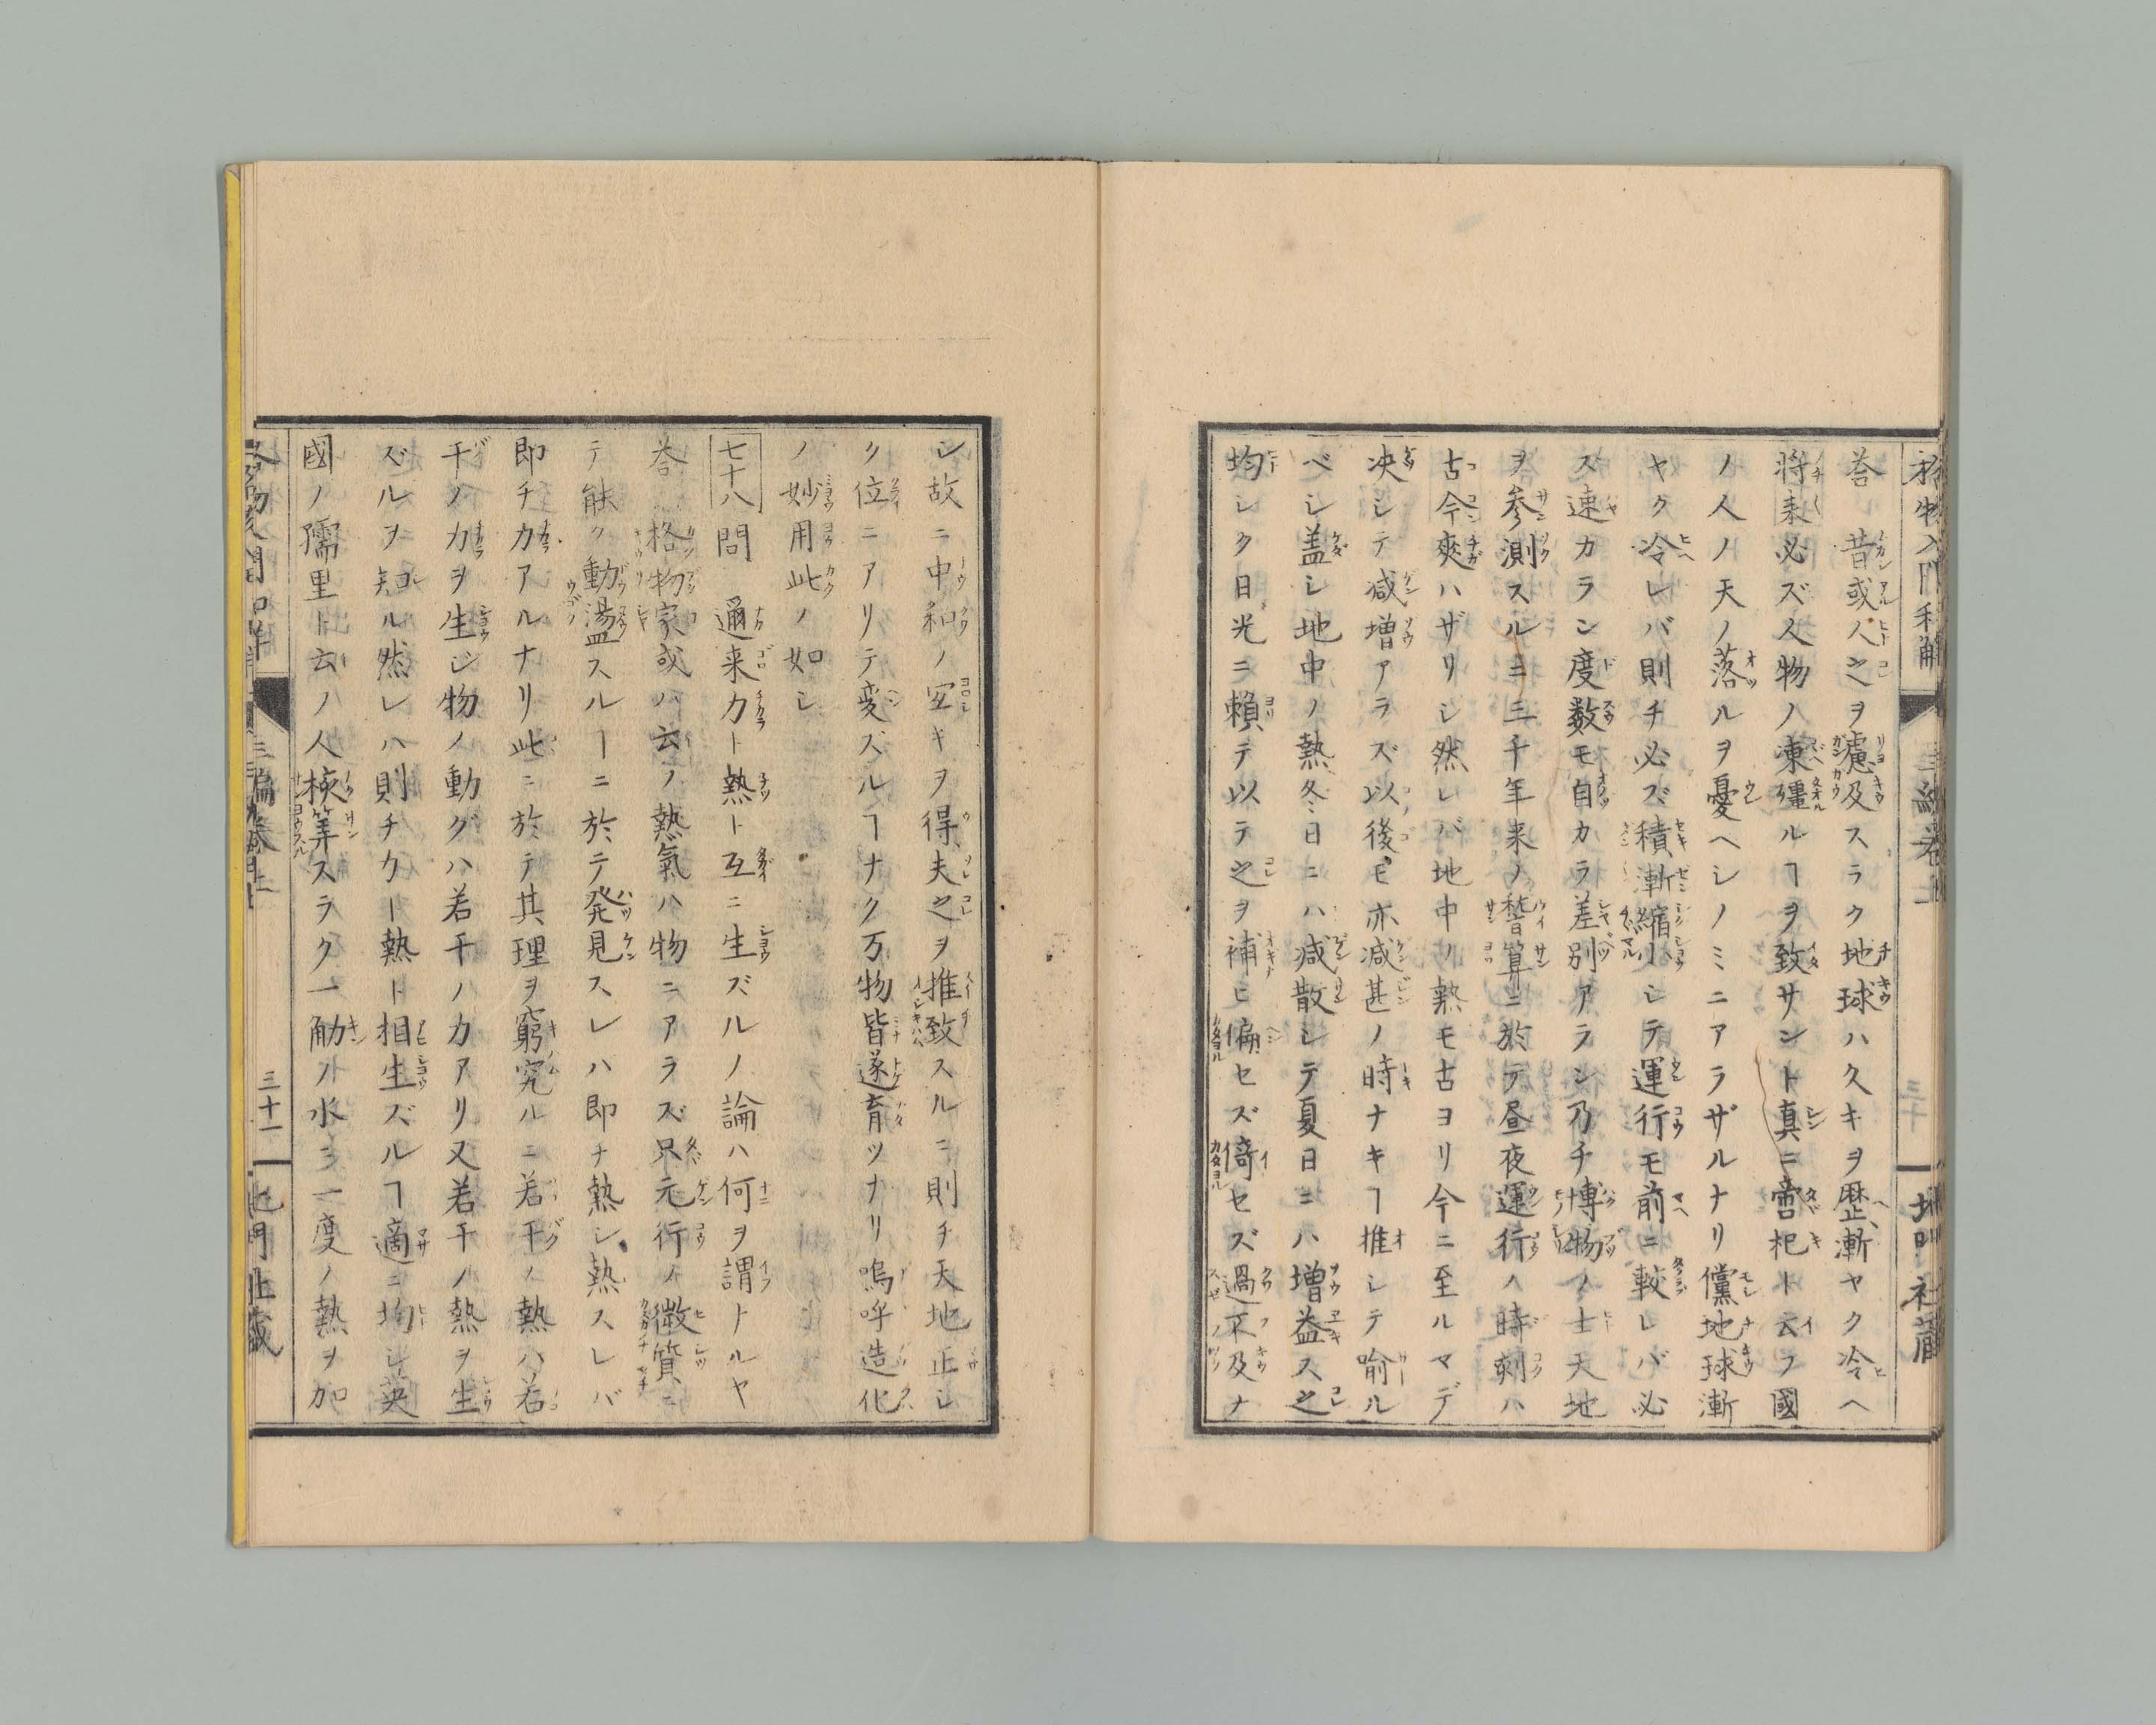 格物入門和解 三編巻上 三十 北門社蔵
荅 昔或人之ヲ慮及スラク地球ハ久キヲ歴漸ヤク冷ヘ
将来必ズ人物ノ凍殭ルヿヲ致サント真ニ啻杞ト云フ國
ノ人ノ天ノ落ルヲ憂ヘシノミニアラザルナリ儻地球漸
ヤク冷レバ則チ必ズ積漸縮小シテ運行モ前ニ較レバ必
ス速カラン度数モ自カラ差別アラン乃チ博物ノ士天地
ヲ参測スルニ三千年来ノ嵆算ニ於テ昼夜運行ノ時刻ハ
古今爽ハザリシ然レバ地中ノ熱モ古ヨリ今ニ至ルマデ
决シテ减増アラズ以後モ亦减甚ノ時ナキヿ推シテ喻ル
ベシ盖シ地中ノ熱冬日ニハ减散シテ夏日ニハ増益ス之
均シク日光ニ頼テ以テ之ヲ補ヒ偏セズ倚セズ過不及ナ
シ故ニ中和ノ宜キヲ得夫之ヲ推致スルニ則チ天地正シ
ク位ニアリテ変ズルヿナク万物皆遂育ツナリ嗚呼造化
ノ妙用此ノ如シ
七十八 問 邇来力ト熱ト互ニ生ズルノ論ハ何ヲ謂トルヤ
荅 格物家或ハ云ノ熱氣ハ物ニアラズ只元行ノ微質ニ
テ能ク動盪スルーニ於テ発見スレハ即チ熱シ熱スレバ
即チ力アルナリ此ニ於テ其理ヲ窮究ルニ若干ノ熱ハ若
干ノ力ヲ生ジ物ノ動グハ若干ノ力アリ又若干ノ熱ヲ生
ズルヲ知ル然レハ則チ力ー熱ト相生ズルヿ適ニ均シ英
國ノ孺里ト云ノ人核筭スラク一觔ノ水ヲ一度ノ熱ヲ加
格物入門和解 三編巻上 三十一 北門社蔵